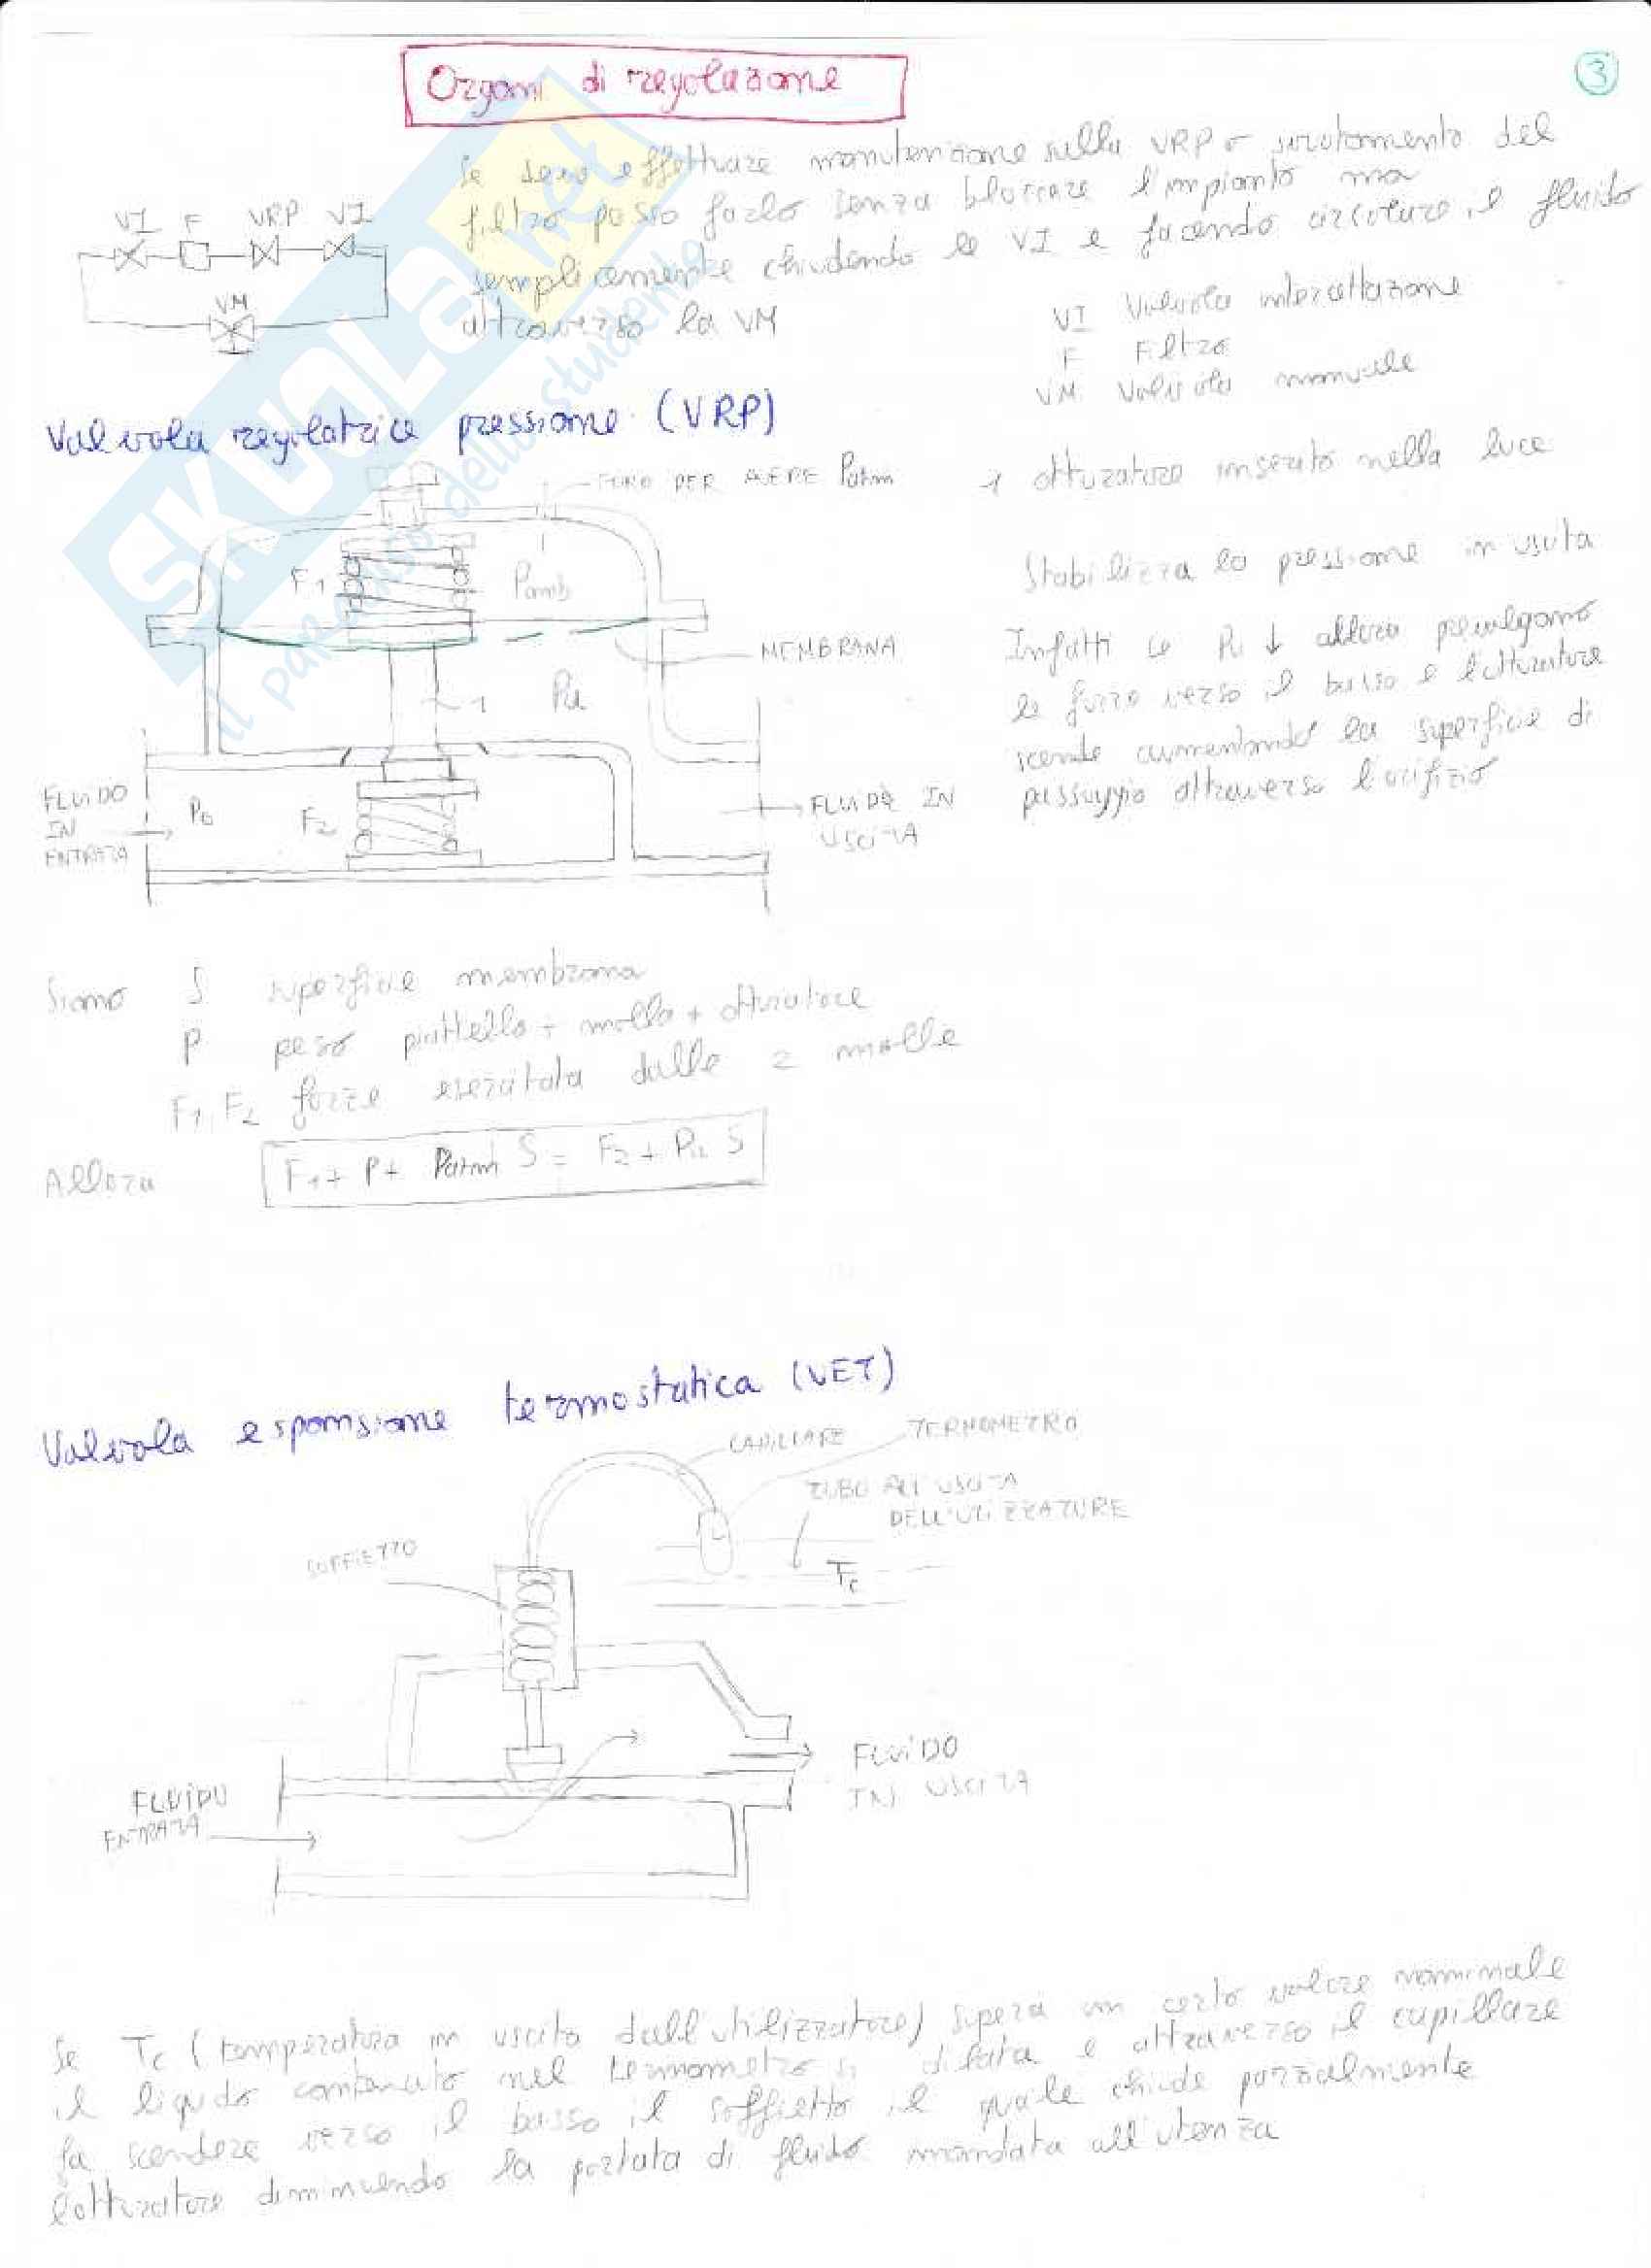 Organi di regolazione
3
Se devo effettuare manutenzione sulla VRP o svuotamento del
filtro posso farlo senza bloccare l'impianto ma
semplicemente chiudendo le VI e facendo circolare il fluido
attraverso la VM
VI F VRP VI
VM
VI Valvola intercettazione
F Filtro
VM Valvola manuale
Valvola regolatrice pressione (VRP)
FORO PER AVERE Patm
1 otturatore inserito nella luce
F1 Pamb
Stabilizza la pressione in uscita
MEMBRANA
Infatti se Pu ↓ allora prevalgono
le forze verso il basso e l'otturatore
scende aumentando la superficie di
passaggio attraverso l'orifizio
1 Pu
FLUIDO
IN
ENTRATA
P0 F2
FLUIDO IN
USCITA
Siano S superficie membrana
P peso piattello + molla + otturatore
F1, F2 forze esercitata dalle 2 molle
Allora F1 + P + Patm S = F2 + Pu S
Valvola espansione termostatica (VET)
CAPILLARE
TERMOMETRO
TUBO ALL'USCITA
DELL'UTILIZZATORE
SOFFIETTO
Tc
FLUIDO
IN USCITA
FLUIDO
ENTRATA
Se Tc (temperatura in uscita dall'utilizzatore) supera un certo valore nominale
il liquido contenuto nel termometro si dilata e attraverso il capillare
fa scendere verso il basso il soffietto il quale chiude parzialmente
l'otturatore diminuendo la portata di fluido mandata all'utenza
SKUOLA.net
il paradiso dello studente